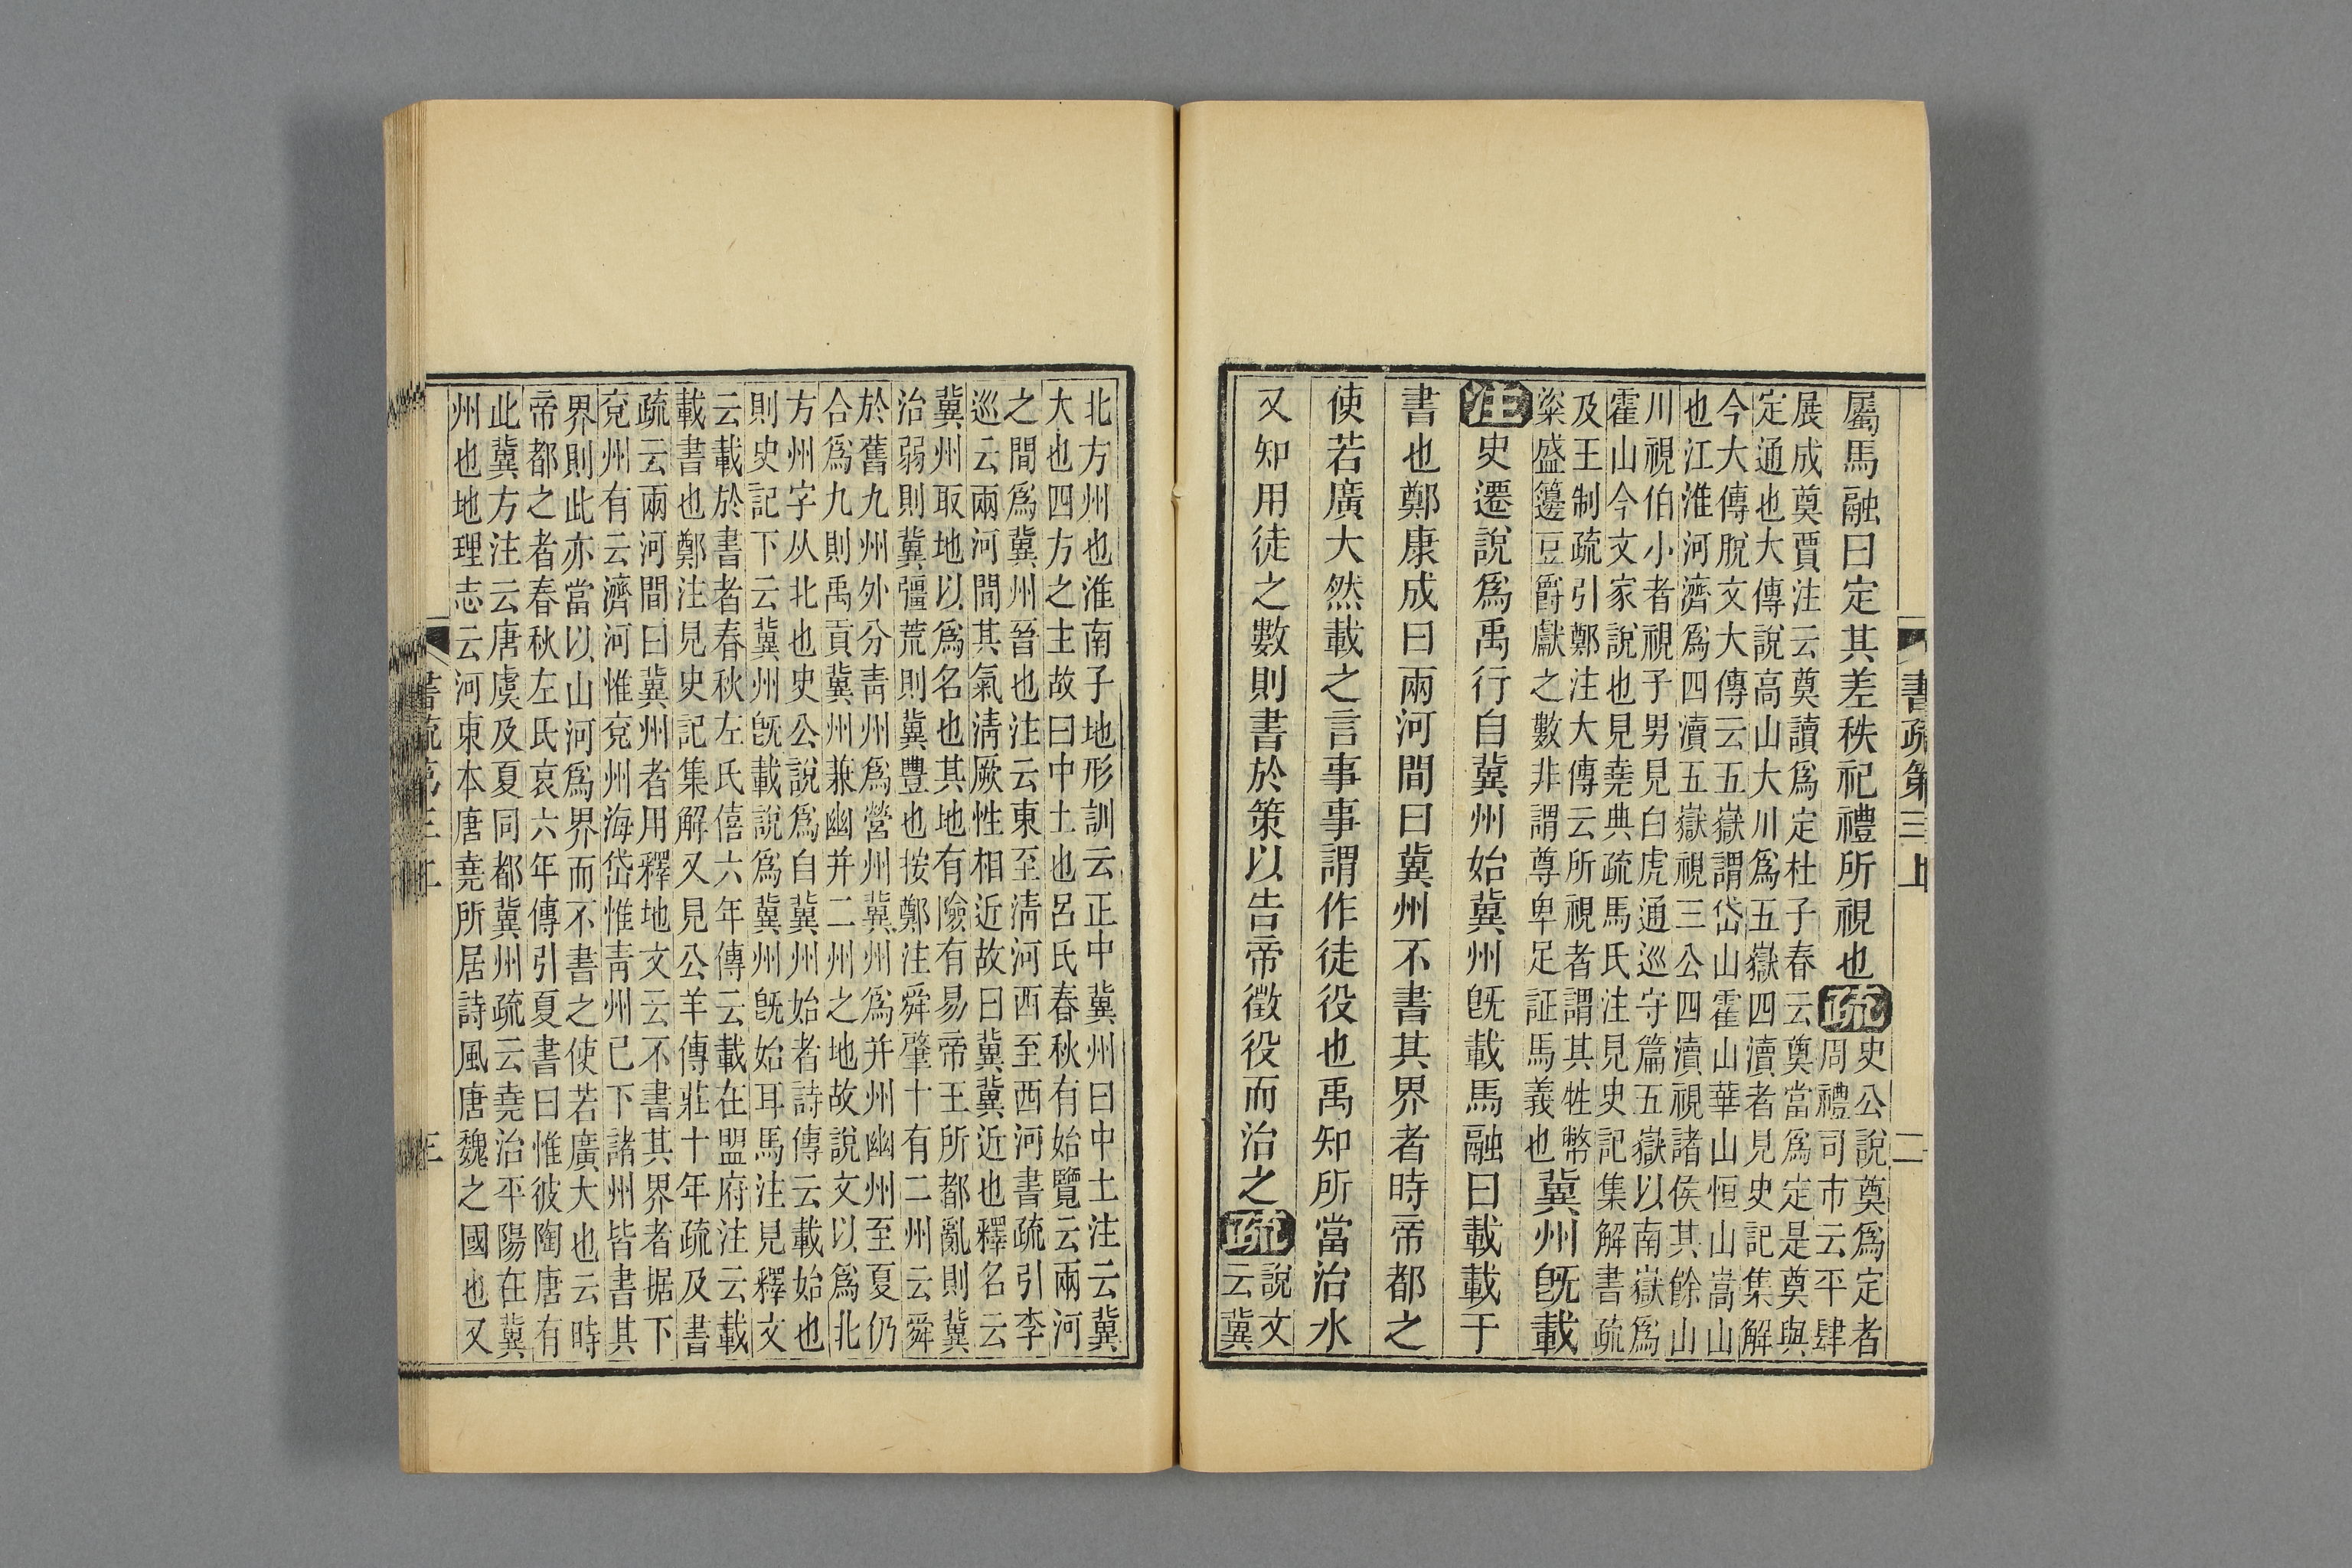 書疏第三上 二
屬馬融曰定其差秩祀禮所視也疏史公說奠爲定者
周禮司市云平肆
展成奠賈注云奠讀爲定杜子春云奠當爲定是奠與
定通也大傳說高山大川爲五嶽四瀆者見史記集解
今大傳脫文大傳云五嶽謂岱山霍山華山恒山嵩山
也江淮河濟爲四瀆五嶽視三公四瀆視諸侯其餘山
川視伯小者視子男見白虎通巡守篇五嶽以南嶽爲
霍山今文家說也見堯典疏馬氏注見史記集解書疏
及王制疏引鄭注大傳云所視者謂其牲幣
粢盛籩豆爵獻之數非謂尊卑足証馬義也冀州旣載
注史遷說爲禹行自冀州始冀州旣載馬融曰載載于
書也鄭康成曰兩河間曰冀州不書其界者時帝都之
使若廣大然載之言事事謂作徒役也禹知所當治水
又知用徒之數則書於策以告帝徵役而治之疏說文
云冀
北方州也淮南子地形訓云正中冀州曰中土注云冀
大也四方之主故曰中土也呂氏春秋有始覽云兩河
之間爲冀州晉也注云東至淸河西至西河書疏引李
巡云兩河間其氣淸厥性相近故曰冀冀近也釋名云
冀州取地以爲名也其地有險有易帝王所都亂則冀
治弱則冀彊荒則冀豐也按鄭注舜肇十有二州云舜
於舊九州外分靑州爲營州冀州爲并州幽州至夏仍
合爲九則禹貢冀州兼幽并二州之地故說文以爲北
方州字从北也史公說爲自冀州始者詩傳云載始也
則史記下云冀州旣載說爲冀州旣始耳馬注見釋文
云載於書者春秋左氏僖六年傳云載在盟府注云載
載書也鄭注見史記集解又見公羊傳莊十年疏及書
疏云兩河間曰冀州者用釋地文云不書其界者据下
兗州有云濟河惟兗州海岱惟靑州已下諸州皆書其
界則此亦當以山河爲界而不書之使若廣大也云時
帝都之者春秋左氏哀六年傳引夏書曰惟彼陶唐有
此冀方注云唐虞及夏同都冀州疏云堯治平陽在冀
州也地理志云河東本唐堯所居詩風唐魏之國也又
書疏第三上 三